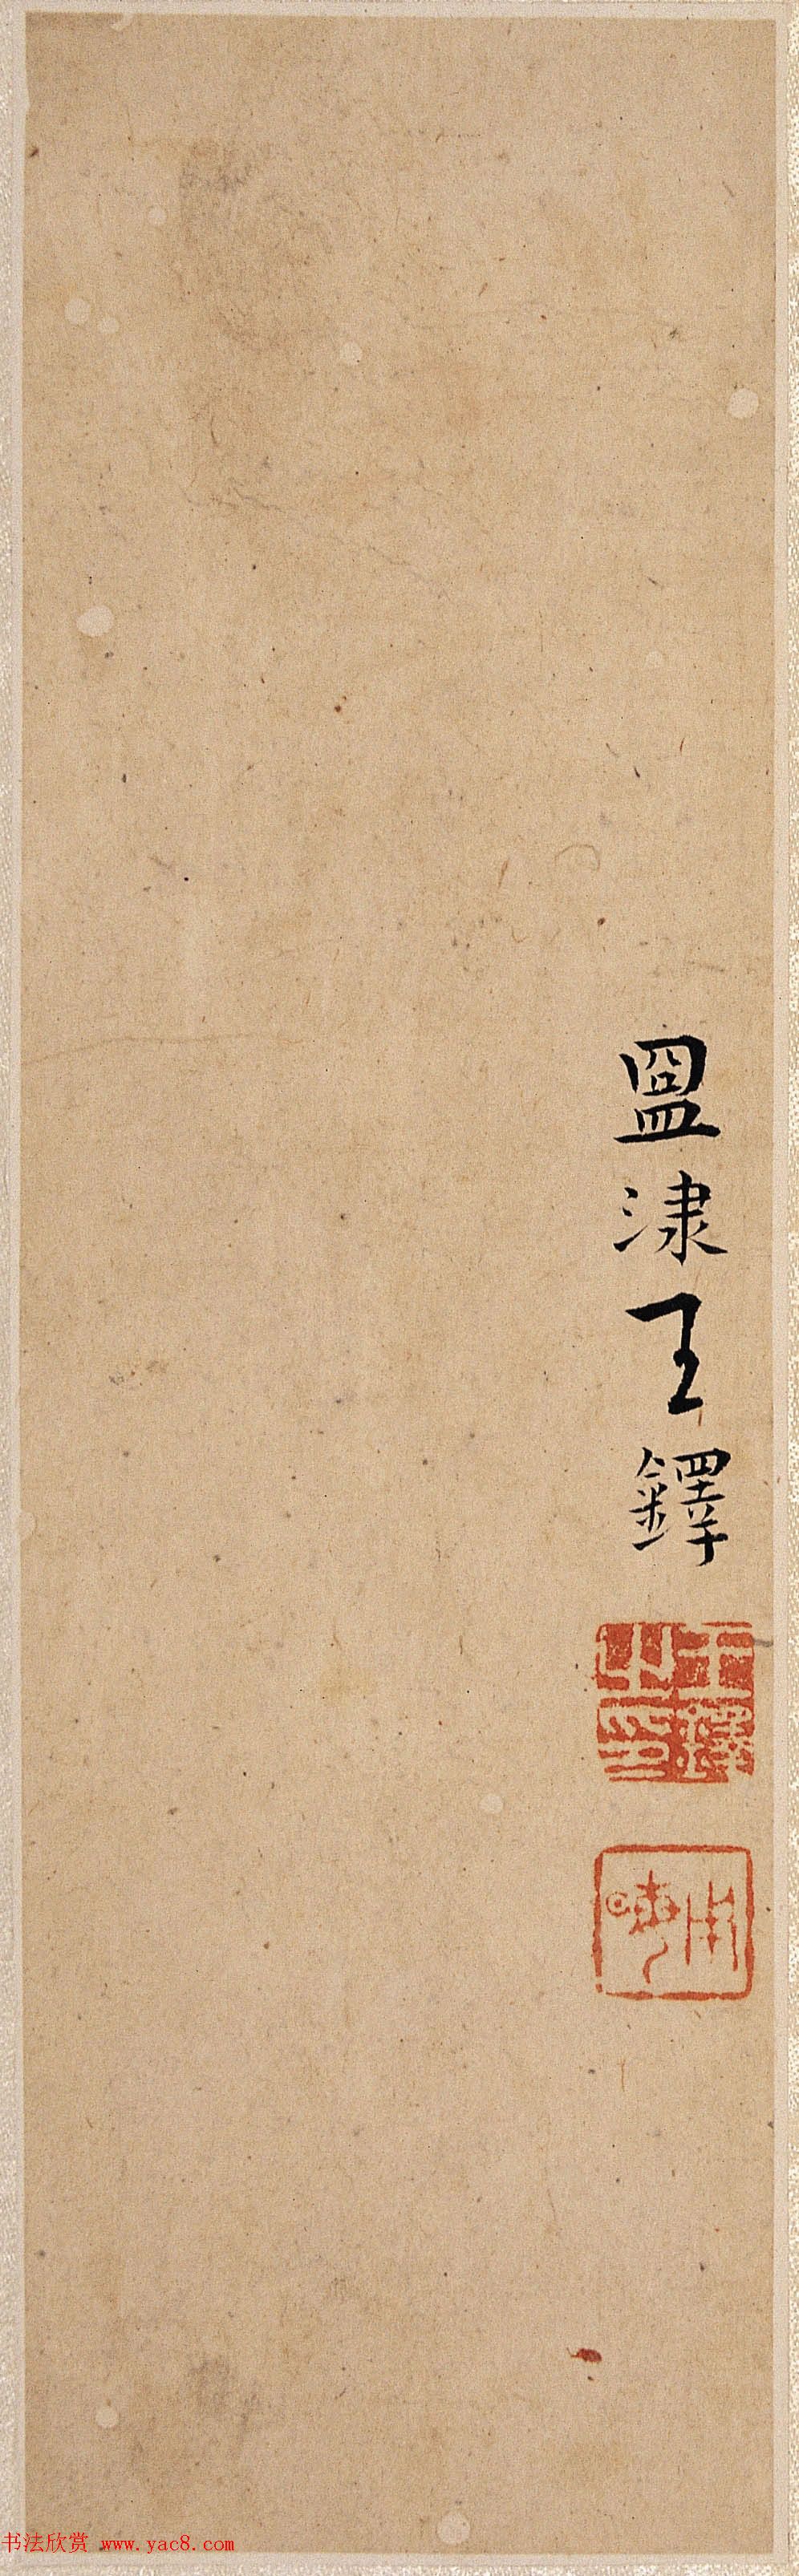 盟津王鐸
王鐸之印
书法欣赏 www.yac8.com